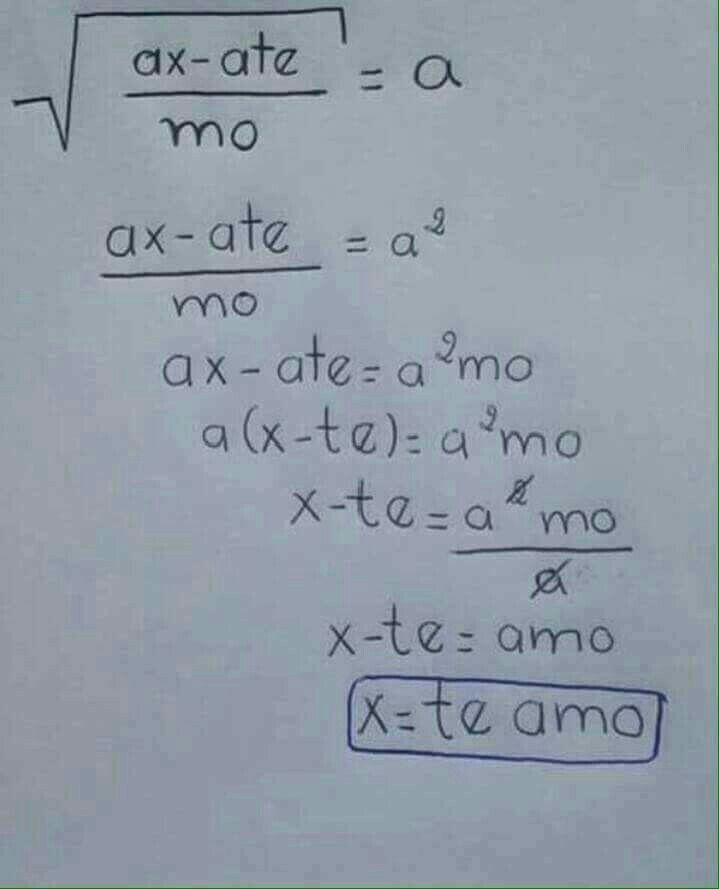 √(ax-ate/mo) = a
ax-ate/mo = a²
ax-ate = a²mo
a(x-te) = a²mo
x-te = a²mo/a
x-te = amo
x = te amo